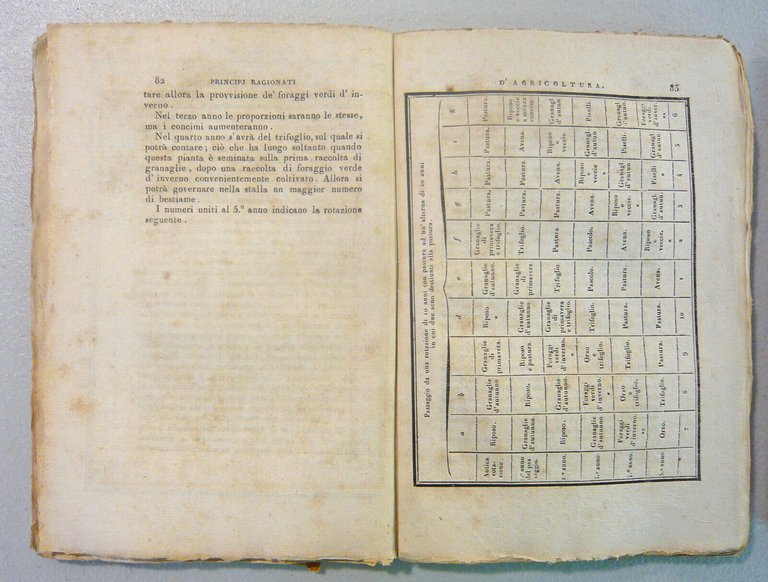 82
PRINCIPJ RAGIONATI
tare allora la provvisione de' foraggi verdi d' in-
verno.
Nel terzo anno le proporzioni saranno le stesse,
ma i concimi aumenteranno.
Nel quarto anno s'avrà del trifoglio, sul quale si
potrà contare; ciò che ha luogo soltanto quando
questa pianta è seminata sulla prima raccolta di
granaglie, dopo una raccolta di foraggio verde
d' inverno convenientemente coltivato. Allora si
potrà governare nella stalla un maggior numero
di bestiame.
I numeri uniti al 5.° anno indicano la rotazione
seguente.
D' AGRICOLTURA.
83
Passaggio da una rotazione di 10 anni con pastura ad un' alterna di 10 anni
in cui due sono destinati alla pastura.
a b d e f g h i k
Antica rotazione Riposo. Granaglie d'autunno. Granaglie di primavera. Riposo Granaglie d'autunno. Granaglie di primavera e trifoglio. Pastura. Pastura. Pastura. Pastura.
1.° anno del passaggio. Granaglie d'autunno. Riposo. Riposo e pastura. Granaglie d'autunno. Granaglie di primavera. Trifoglio. Pastura. Pastura. Avena. Riposo e veccie a mezzo concim.
2.° anno. Riposo. Granaglie d'autunno. Foraggi verdi d'inverno. Granaglie di primavera e trifoglio. Trifoglio Pastura. Pastura. Avena. Riposo e veccie. Granagl d'autun.
3.° anno. Granaglie d'autunno. Foraggi verdi d'inverno. Orzo e trifoglio. Pastura. Pascolo. Pascolo. Avena. Riposo e veccie. Granagl d'autun. Piselli.
4.° anno. Foraggi verdi d'inverno. ** Orzo e trifoglio. Trifoglio. Pastura. Pastura. Avena. Riposo e veccie. Granagl d'autun. Piselli. Granagl d'autun.
5.° anno. Orzo. Trifoglio. Pastura. Pastura. Avena. Riposo e veccie. Granagl d'autun. Piselli Granagl d'autun. Foraggi verdi d'inver. **
7 8 9 10 1 2 3 4 5 6